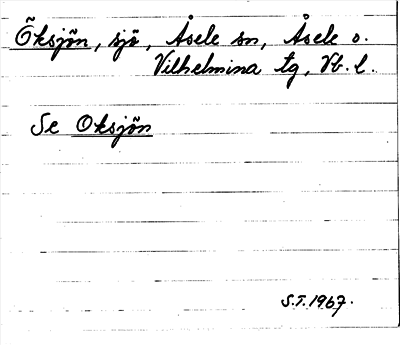 Öksjön, sjö, Åsele sn, Åsele o.
Vilhelmina tg, Vb. l.
Se Oksjön
S.T. 1967.